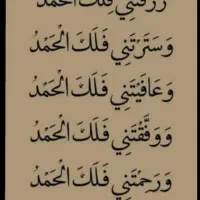 رَزَقْتَنِي فَلَكَ الْحَمْدُ
وَسَتَرْتَنِي فَلَكَ الْحَمْدُ
وَعَافَيْتَنِي فَلَكَ الْحَمْدُ
وَوَفَّقْتَنِي فَلَكَ الْحَمْدُ
وَرَحِمْتَنِي فَلَكَ الْحَمْدُ